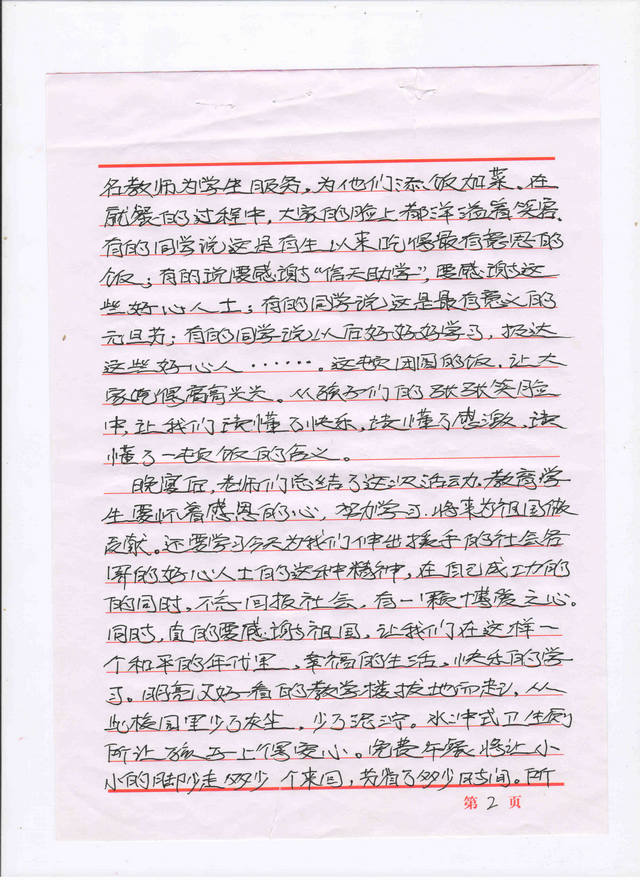 名教师为学生服务,为他们添饭加菜。在
就餐的过程中,大家的脸上都洋溢着笑容,
有的同学说这是有生以来吃得最有意思的
饭;有的说要感谢“信天助学”,要感谢这
些好心人士;有的同学说这是最有意义的
元旦节;有的同学说以后好好好学习,报达
这些好心人……。这顿团圆的饭,让大
家吃得高高兴兴。从孩子们的张张笑脸
中,让我们读懂了快乐,读懂了感激,读
懂了一顿饭的含义。
晚宴后,老师们总结了这次活动,教育学
生要怀着感恩的心,努力学习,将来为祖国做
贡献。还要学习今天为我们伸出援手的社会各
界的好心人士的这种精神,在自己成功的
的同时,不忘回报社会,有一颗博爱之心。
同时,真的要感谢祖国,让我们在这样一
个和平的年代里,幸福的生活,快乐的学
习。明亮又好看的教学楼拔地而起,从
此校园里少了灰尘,少了泥泞。水冲式卫生厕
所让孩子上得安心。免费午餐将让小
小的脚少走多少个来回,节省了多少时间。所
第 2 页